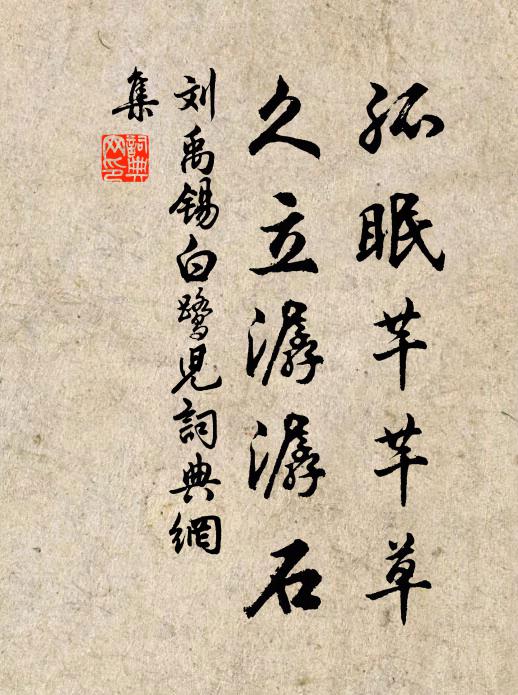 孤眠芊芊草
久立潺潺石
刘禹锡白鹭児詞典網
集
詞典
网印